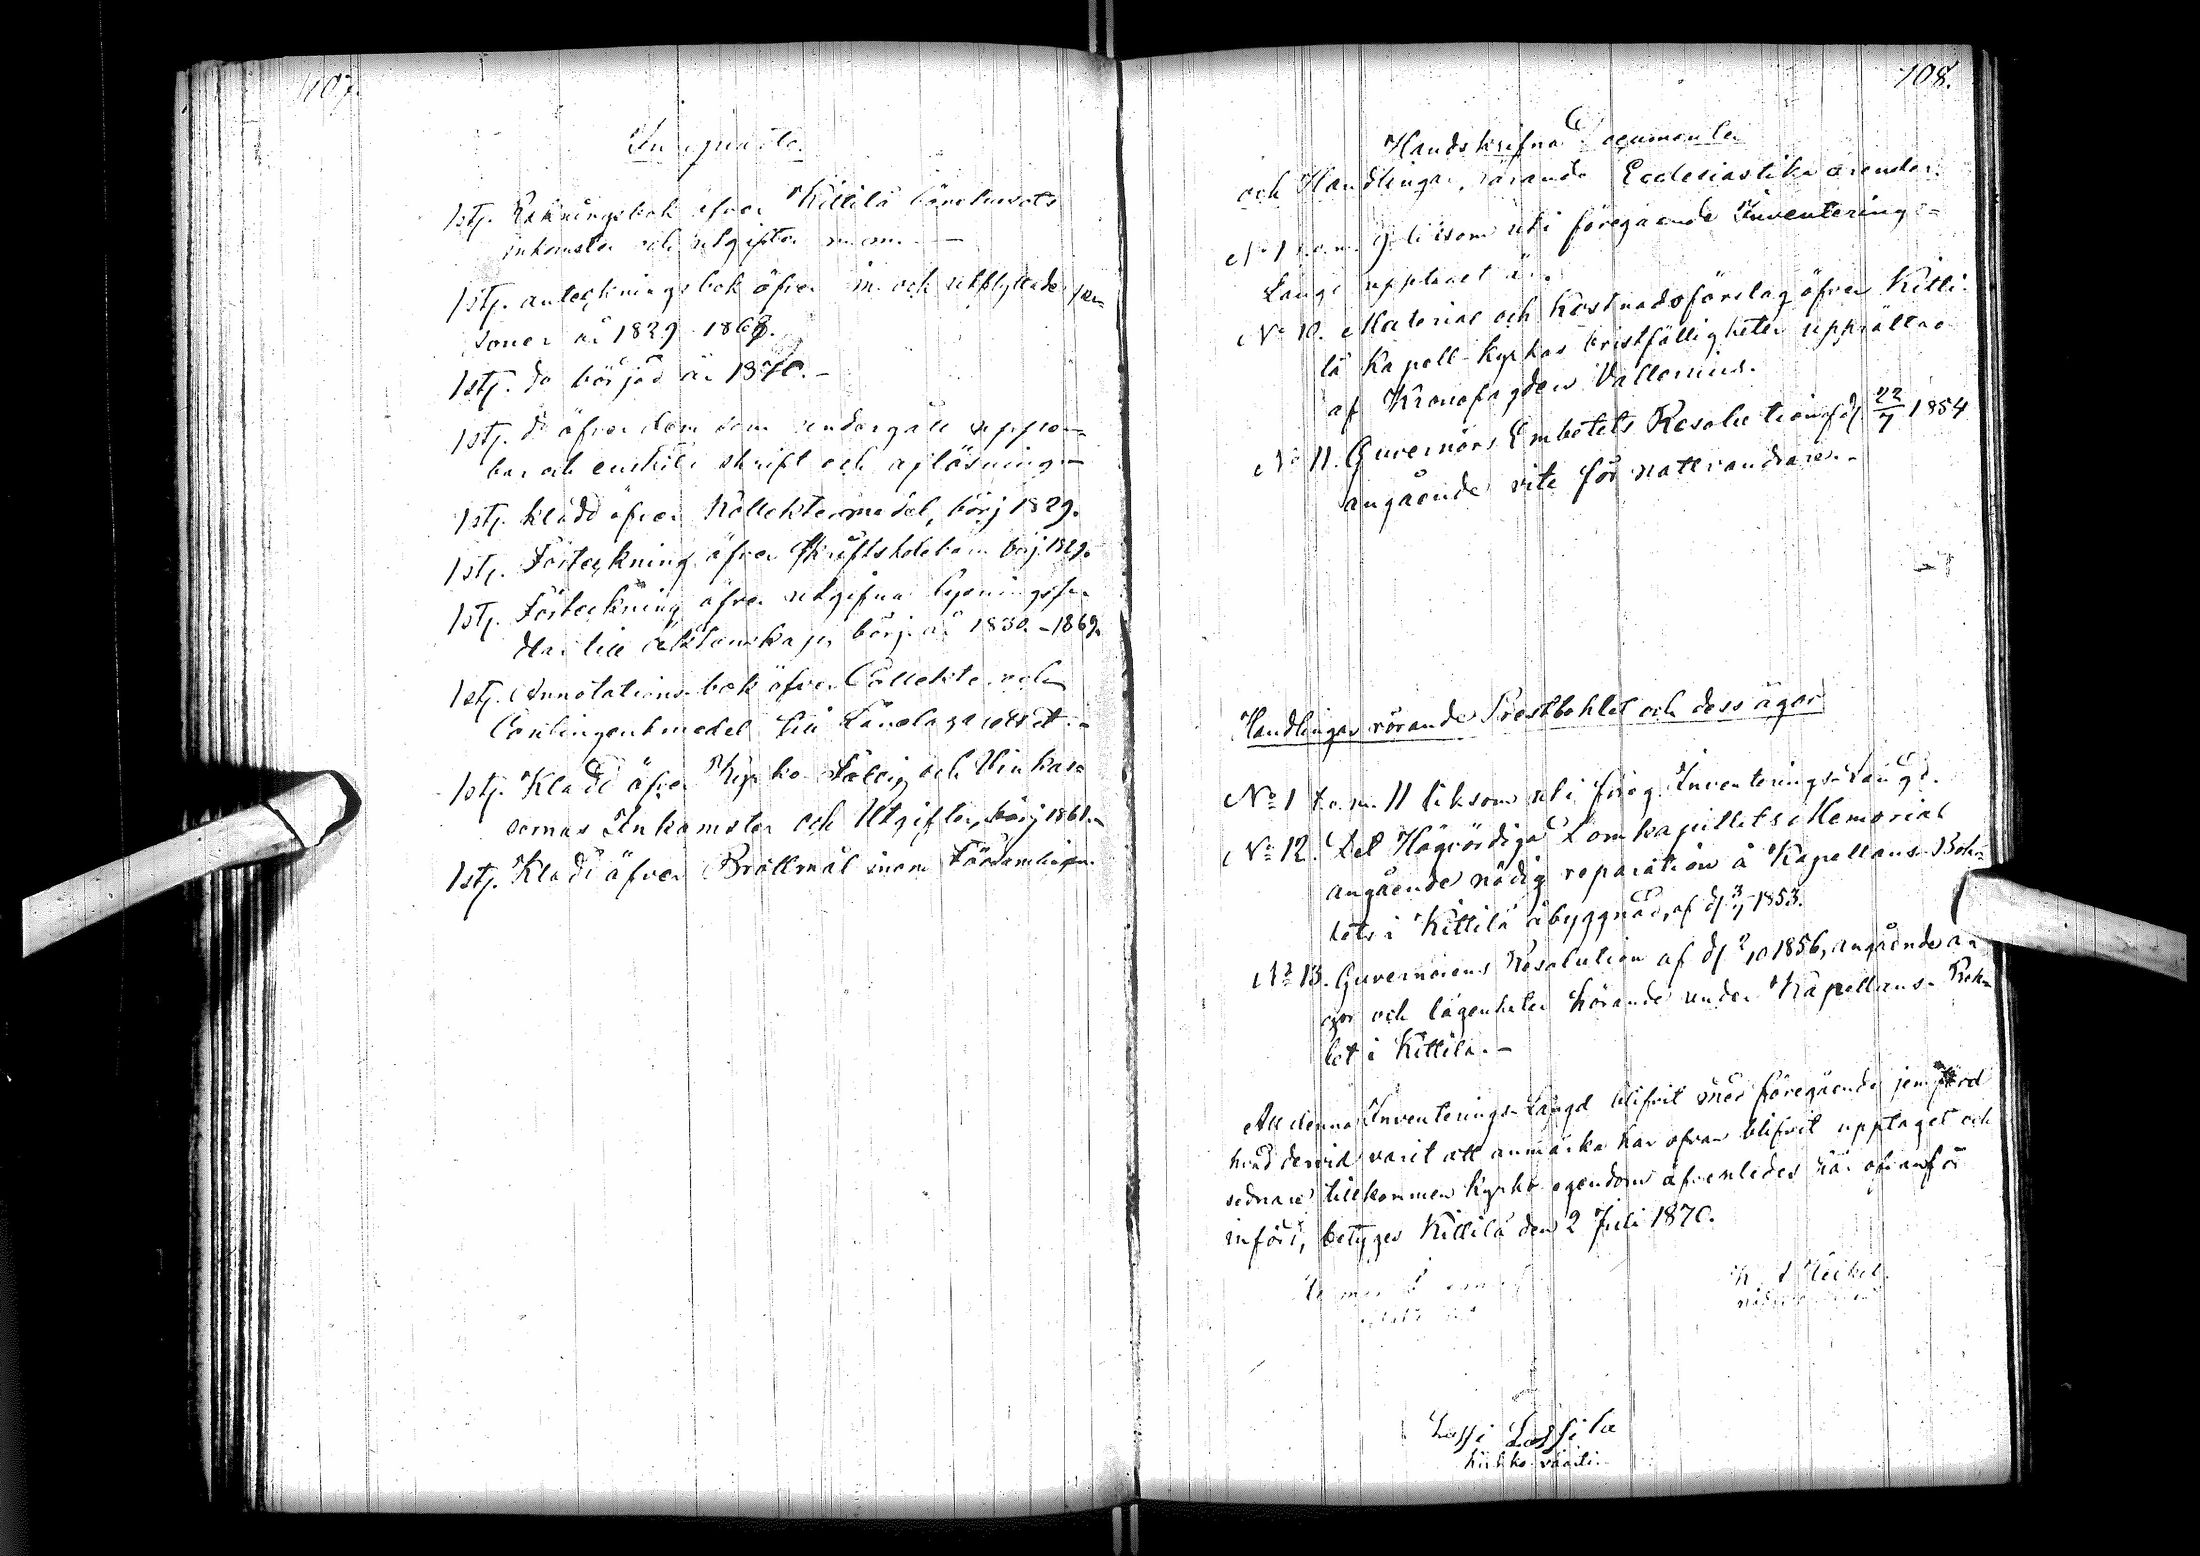 107.
In quarto.
1 stj. Räkningsbok öfver Kittilä bönehusets
inkomster och utgifter m.m. —
1 stj. anteckningsbok öfver in- och utflyttade per-
soner år 1829–1869.
1 stj. do börjad år 1870. –
1 stj. do öfver dem som undergått uppen-
bar och enskilt skrift och aflösning –
1 stj. kladd öfver Kollektermedel, börj 1829.
1 stj. Förteckning öfver Skriftskolebarn börj. 1829.
1 stj. Förteckning öfver utgifna lysningsse-
dlar till äktenskap, börj. år 1830. – 1869.
1 stj. Annotations bok öfver Collekte och
Contingentmedel till Länelazarettet. –
1 stj. Kladd öfver Kyrko Fattig och Vinkas-
sornas Inkomster och Utgifter, börj 1861. –
1 stj. Kladd öfver Brottmål inom Församlingen
108.
Handskrifna Documenter
och Handlingar, rörande Ecclesiastika ärender.
No 1 t.o.m. 9 liksom uti föregående Inventerings-
Längd upptaget är.
No 10. Material och Kostnadsförslag öfver Kitti-
lä Kapell-kyrkas bristfälligheter upprättad
af Kronofogden Vallenius.
No 11. Guvernörs Embetets Resolution af d. 22/7 1854
angående vite för nattvandrare. –
Handlingar rörande Prestbohlet och dess ägor
No 1 t.o.m. 11 liksom uti föreg. Inventerings-Längd.
No 12. Det Högvördiga Domkapitlets Memorial
angående nödig reparation å Kapellans-Boh-
lets i Kittilä åbyggnad, af d. 3/7 1853.
No 13. Guvernörens Resolution af d. 2/10 1856, angående
ägor och lägenheter hörande under Kapellans-Boh-
let i Kittilä. –
Att denna Inventerings-Längd blifvit med föregående jemförd
hvad dervid varit att anmärka har ofvan blifvit upptaget och
sednare tillkommen Kyrko egendom äfvenledes här ofvanför
införd, betyges Kittilä den 2 Juli 1870.
Lassi Lassila
Kirkko väärti.